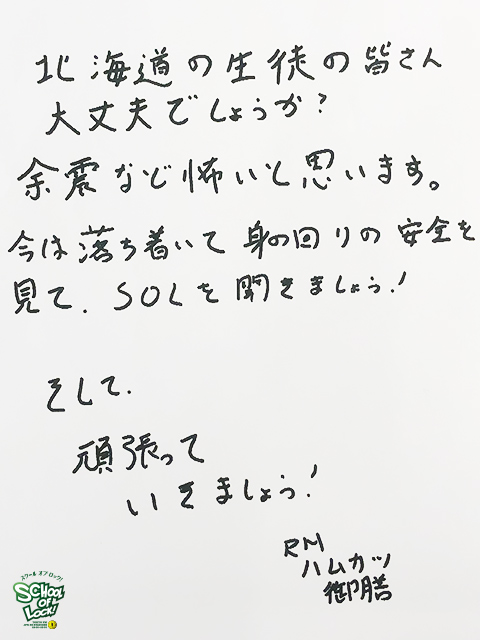 北海道の生徒の皆さん
大丈夫でしょうか?
余震など怖いと思います。
今は落ち着いて身の回りの安全を
見て、SOLを聞きましょう!
そして、
頑張って
いきましょう!
RM
ハムカツ
御膳
スクール オブ ロック!
SCHOOL
OF
LOCK!